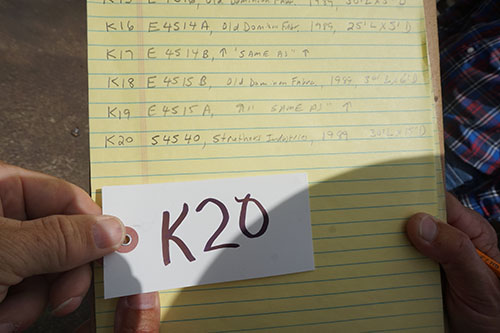 K16 E4514A, Old Dominion Fabr. 1989, 25'L X 5'D
K17 E4514B, ↑ "SAME AS" ↑
K18 E4515B, Old Dominion Fabr. 1989,
K19 E4515A, "SAME AS" ↑
K20 54540, Struthers Industries, 1989
K20